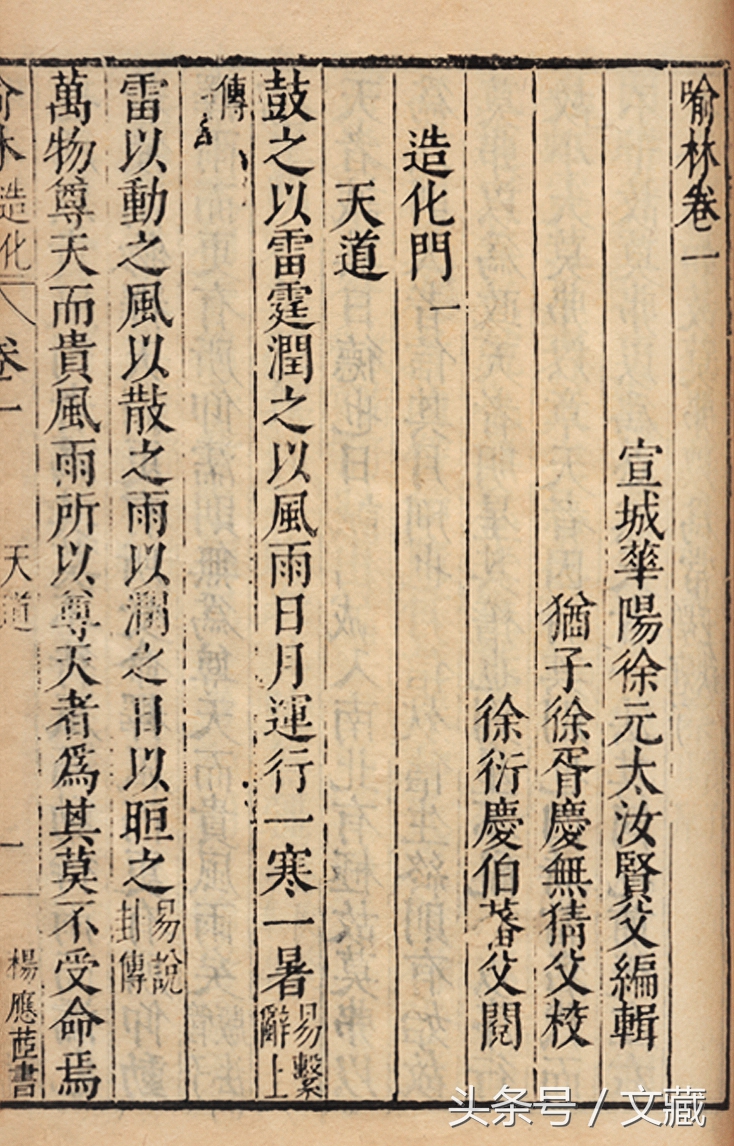 喻林卷一
宣城華陽徐元太汝賢父編輯
猶子徐胥慶無猜父校
徐衍慶伯蕃父閱
造化門一
天道
鼓之以雷霆潤之以風雨日月運行一寒一暑易繫辭上
傳
雷以動之風以散之雨以潤之日以晅之易說卦傳
萬物尊天而貴風雨所以尊天者爲其莫不受命焉
喻林 造化 卷一 天道 一 楊應 書
头条号 / 文藏